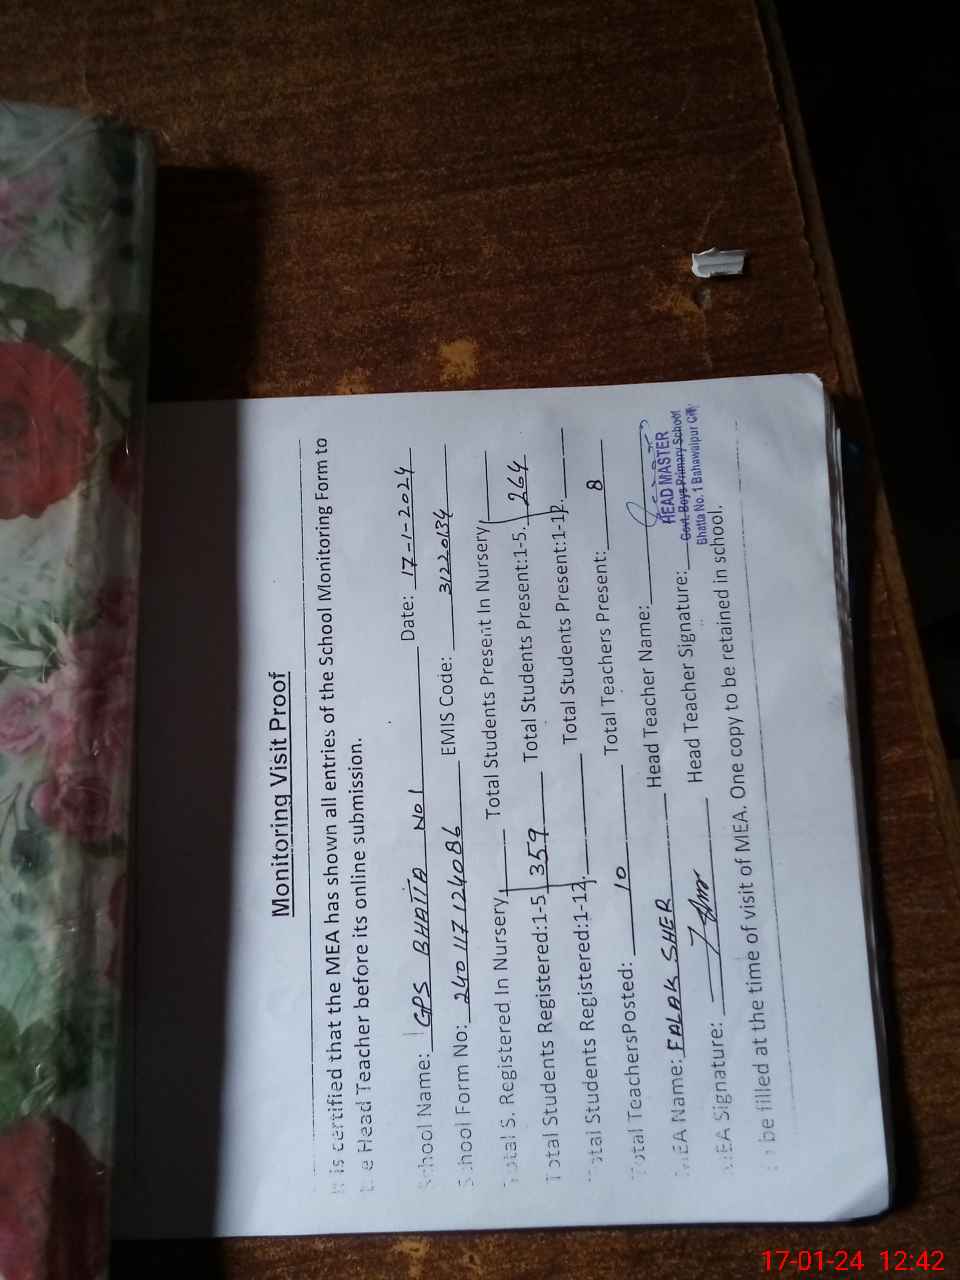 Monitoring Visit Proof
is certified that the MEA has shown all entries of the School Monitoring Form to
Head Teacher before its online submission.
School Name: GPS BHATTA No 1 Date: 17-1-2024
School Form No: 240117124086 EMIS Code: 31220134
Total S. Registered In Nursery Total Students Present In Nursery
Total Students Registered:1-5 359 Total Students Present:1-5. 264
Total Students Registered:1-12. Total Students Present:1-12.
Total TeachersPosted: 10 Total Teachers Present: 8
MEA Name: FALAK SHER Head Teacher Name:
MEA Signature: Head Teacher Signature:
HEAD MASTER
Govt. Boys Primary School
Bhatta No. 1 Bahawalpur City
be filled at the time of visit of MEA. One copy to be retained in school.
17-01-24 12:42